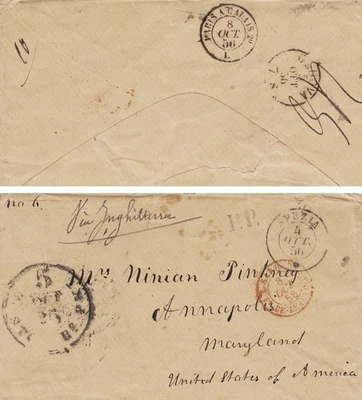 10
PARIS A CALAIS
8
OCT.
56
GENOVA
OTT
no 6.
Via Inghilterra
P.P.
SPEZIA
4
OTT.
56
5
Mrs Ninian Pinkney
Annapolis
Maryland
United States of America